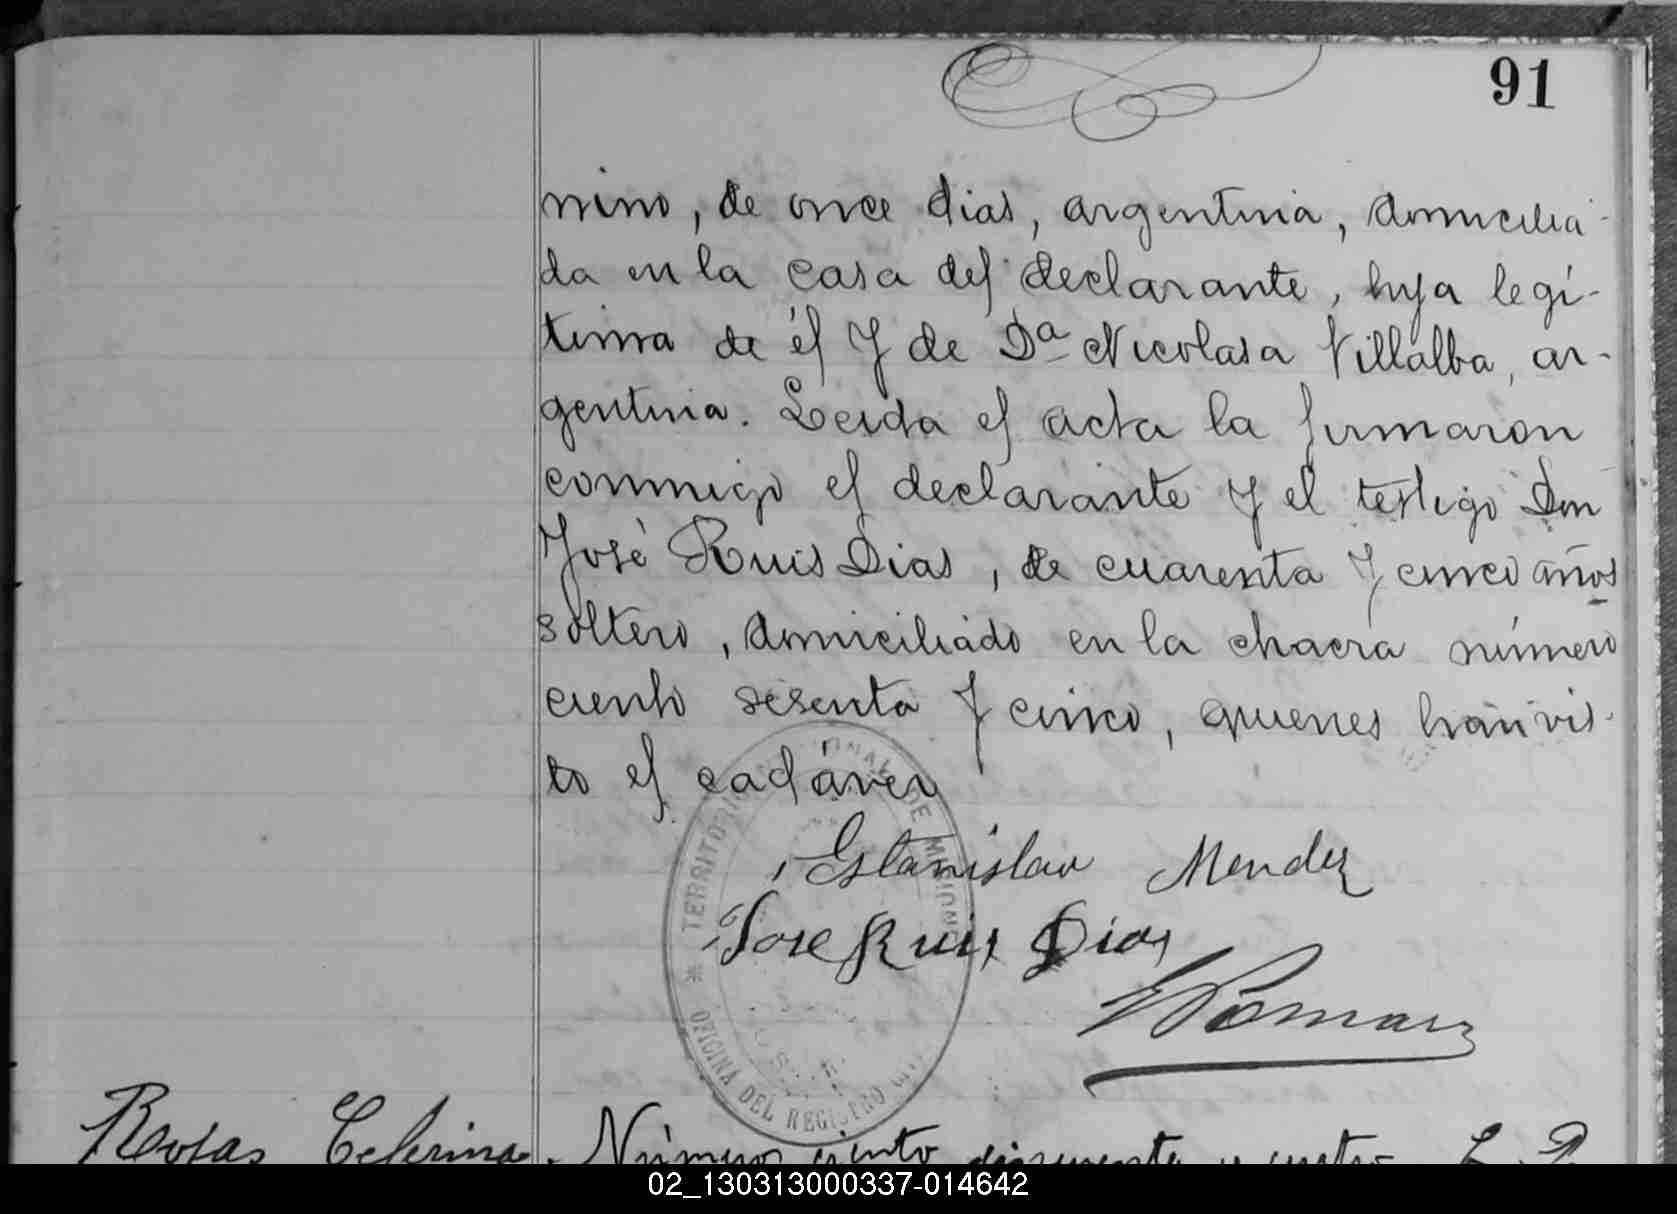 91
nino, de once dias, argentina, domicilia-
da en la casa del declarante, hija legí-
tima de él y de Da Nicolasa Villalba, ar-
gentina. Leida el acta la firmaron
conmigo el declarante y el testigo Don
José Ruis Dias, de cuarenta y cinco años
soltero, domiciliado en la chacra número
ciento sesenta y cinco, quienes han vis-
to el cadáver
Estanislao Mendez
Jose Ruis Dias
TERRITORIO NACIONAL DE MISIONES
OFICINA DEL REGISTRO
Celerina
Número ciento cincuenta y cuatro
02_130313000337-014642